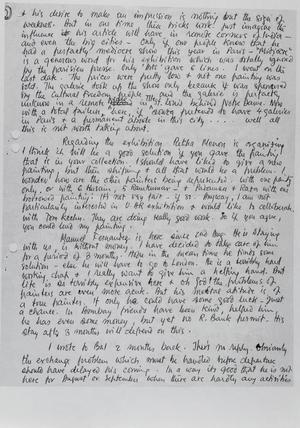 & his desire to make an impression is nothing but the sign of
weakness. But in our time this trick works. Just imagine the
influence his article will have in remote corners of India
and even the big cities. Only if our people knew that he
had a perfectly mediocre show this year in Paris. "Mediocre"
is a generous word for his exhibition which was totally ignored
by the Parisian press. Only "Arts" gave 6 lines. I went on the
last date. The prices were pretty low & not one painting was
sold. The galerie took up the show only because it was sponsored
by the Cultural Freedom people and the galerie is perfectly
unknown in a remote in St. Louis behind Notre Dame. Now
with a total failure here, the moron pretends to have galleries
in Paris & a permanent abode in the city ..... well all
this is not worth talking about.
Regarding the exhibition Rekha Menon is organizing
I think it will be a good solution if you gave the painting
that is in your collection. I should have liked to give a new
painting, but then shipping & all that would be a problem. I
wonder how are the other painters being represented. With one painting
only, or with 6 Husain, 5 Ramkumar & Padamsee & Raza with one
borrowed painting. It's not very fair. Anyway, I am not
particularly interested in the exhibition & would like to collaborate
with Tom Keehn. They are doing really good work. So if you agree,
you could lend my painting.
Manuel Fernandez is here since one week. He is staying
with us, is without money. I have decided to take care of him
for a period of 3 months. Then in the mean time he finds some
solution - else he will have to go to London. He is a healthy hard
working chap & I really want to give him a helping hand. But
life is so terribly expensive here & oh God the problems of
painters are even more acute. But his instant attitude is of
a true painter. If only he could have some good luck - just
a chance. In Bombay friends have been kind, helped him,
he has even some money but yet no R. Bank permit. His
stay after 3 months will depend on this.
I wrote to Bal 2 months back. There's no reply. Obviously
the exchange problem which must be handled before departure
should have delayed his coming. In a way its good that he is not
here for August or September when there are hardly any activities